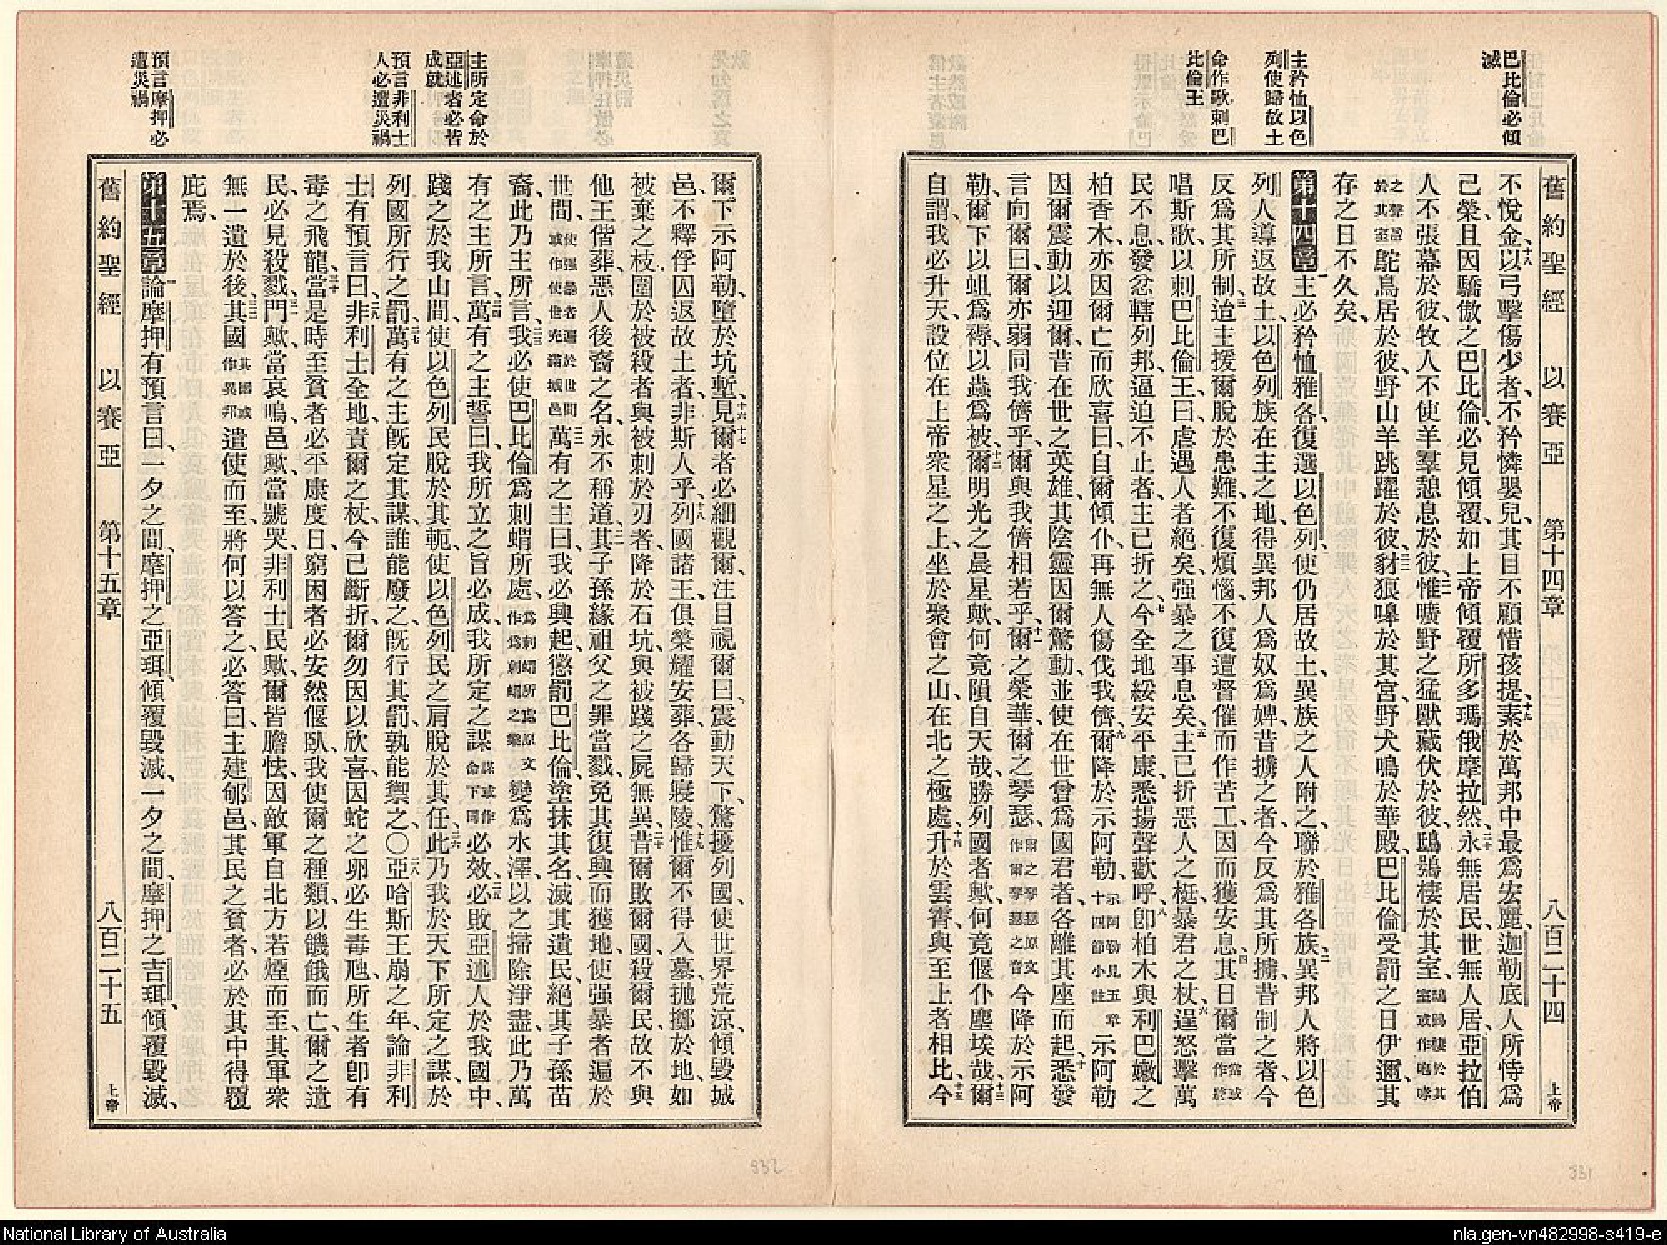 巴比倫必傾
滅
主矜恤以色
列使歸故土
命作歌刺巴
比倫王
舊約聖經 以賽亞 第十四章 八百二十四 上帝
不悅金、十八以弓擊傷少者、不矜憐嬰兒、其目不顧惜孩提、十九素於萬邦中最爲宏麗、迦勒底人所恃爲
己榮、且因驕傲之巴比倫、必見傾覆、如上帝傾覆所多瑪俄摩拉然、二十永無居民、世世無人居、亞拉伯
人不張幕於彼、牧人不使羊羣憩息於彼、二一惟曠野之猛獸藏伏於彼、鴟鵂棲於其室、鴟鵂棲於其室或作咆哮
之聲盈於其室鴕鳥居於彼、野山羊跳躍於彼、二二豺狼嘷於其宮、野犬鳴於華殿、巴比倫受罰之日伊邇、其
存之日不久矣、
第十四章一主必矜恤雅各、復選以色列、使仍居故土、異族之人附之、聯於雅各族、二異邦人將以色
列人導返故土、以色列族在主之地、得異邦人爲奴爲婢、昔擄之者、今反爲其所擄、昔制之者、今
反爲其所制、三迨主援爾脫於患難、不復煩惱、不復遭督催而作苦工、因而獲安息、四其日爾當當或作於
唱斯歌、以刺巴比倫王曰、虐遇人者絕矣、强暴之事息矣、五主已折惡人之梃、暴君之杖、六逞怒擊萬
民不息、發忿轄列邦、逼迫不止者、主已折之、七今全地綏安平康、悉揚聲歡呼、八卽柏木與利巴嫩之
柏香木、亦因爾亡而欣喜曰、自爾傾仆、再無人傷伐我儕、九爾降於示阿勒、示阿勒見五章十四節小註示阿勒
因爾震動以迎爾、昔在世之英雄、其陰靈因爾驚動、並使在世曾爲國君者、各離其座而起、十悉發
言向爾曰、爾亦弱同我儕乎、爾與我儕相若乎、十一爾之榮華、爾之琴瑟、爾之琴瑟原文作爾琴瑟之音今降於示阿
勒、爾下以蛆爲褥、以蟲爲被、十二爾明光之晨星歟、何竟隕自天哉、勝列國者歟、何竟偃仆塵埃哉、十三爾
自謂我必升天、設位在上帝衆星之上、坐於聚會之山、在北之極處、十四升於雲霄、與至上者相比、十五今
主所定命於
亞述者必皆
成就
預言非利士
人必遭災禍
預言摩押必
遭災禍
爾下示阿勒、墮於坑塹、十六見爾者必細觀爾、注目視爾曰、十七震動天下、驚擾列國、使世界荒涼、傾毀城
邑、不釋俘囚返故土者、非斯人乎、十八列國諸王、俱榮耀安葬、各歸寢陵、十九惟爾不得入墓、拋擲於地、如
被棄之枝、圍於被殺者與被刺於刃者、降於石坑、與被踐之屍無異、二十昔爾敗爾國、殺爾民、故不與
他王偕葬、惡人後裔之名、永不稱道、二一其子孫緣祖父之罪當戮、免其復興而獲地、使强暴者遍於
世間、使强暴者遍於世間或作使世充滿城邑二二萬有之主曰、我必興起、懲罰巴比倫、塗抹其名、滅其遺民、絕其子孫苗
裔、此乃主所言、二三我必使巴比倫爲刺蝟所處、爲刺蝟所處原文作爲刺蝟之業變爲水澤、以之掃除淨盡、此乃萬
有之主所言、二四萬有之主誓曰、我所立之旨必成、我所定之謀謀或作命下同必效、二五必敗亞述人於我國中、
踐之於我山間、使以色列民脫於其軛、使以色列民之肩脫於其任、二六此乃我於天下所定之謀、於
列國所行之罰、二七萬有之主旣定其謀、誰能廢之、旣行其罰、孰能禦之、〇二八亞哈斯王崩之年、論非利
士有預言曰、二九非利士全地、責爾之杖、今已斷折、爾勿因以欣喜、因蛇之卵、必生毒虺、所生者卽有
毒之飛龍、三十當是時、至貧者必平康度日、窮困者必安然偃臥、我使爾之種類、以饑餓而亡、爾之遺
民、必見殺戮、三一門歟當哀鳴、邑歟當號哭、非利士民歟、爾皆膽怯、因敵軍自北方若煙而至、其軍衆
無一遺於後、三二其國其國或作異邦遣使而至、將何以答之、必答曰、主建郇邑、其民之貧者、必於其中得覆
庇焉、
第十五章一論摩押有預言曰、一夕之間、摩押之亞珥、傾覆毀滅、一夕之間、摩押之吉珥、傾覆毀滅、
舊約聖經 以賽亞 第十五章 八百二十五 上帝
332
331
National Library of Australia
nla.gen-vn482998-s419-e